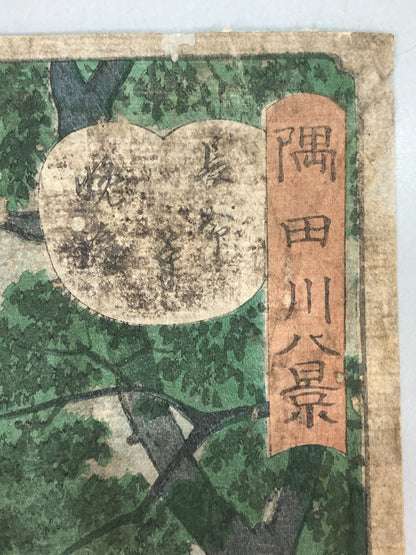 隅田川八景
長命寺
晩鐘